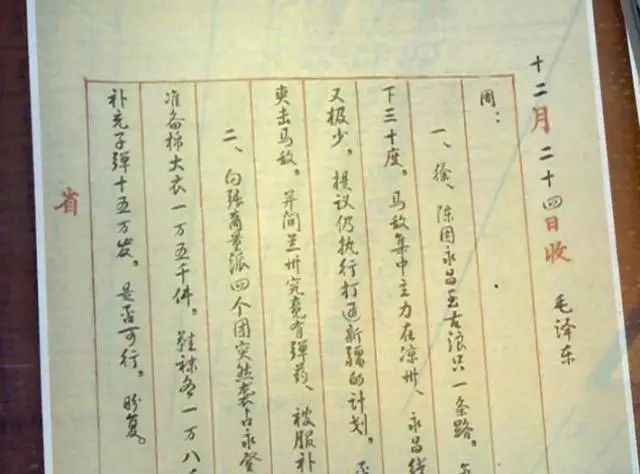 十二月二十四日收
毛泽东
周：
一、徐、陈因永昌至古浪只一条路。
下三十度。马敌集中主力在凉州、永昌
又极少。提议仍执行打通新疆的计划。
夹击马敌。并问兰州究竟有弹药、被服补
二、向张商量派四个团突然袭占永登
准备棉大衣一万五千件。鞋袜各一万八
补充子弹十五万发。是否可行。盼复。
省